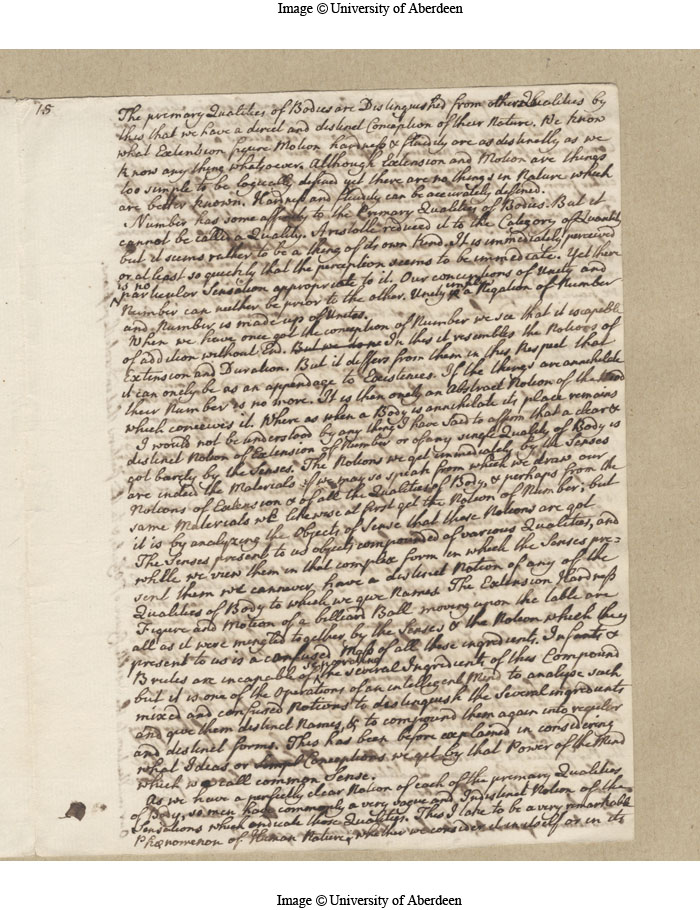 Image © University of Aberdeen
15
The primary Qualities of Bodies are Distinguished from other Qualities by
this that we have a direct and distinct Conception of their Nature. We know
what Extension figure Motion hardness & fluidity are as distinctly as we
know any thing whatsoever. Although Extension and Motion are things
too simple to be logically defined yet there are no things in Nature which
are better known. Hardness and fluidity can be accurately defined.
Number has some affinity to the Primary Qualities of Bodies. But it
cannot be called a Quality. Aristotle reduced it to the Category of Quantity
but it seems rather to be a thing of its own kind. It is immediately perceived
or at least so quickly that the perception seems to be immediate. Yet there
is no
particular Sensation appropriate to it. Our conceptions of Unity and
Number can neither be prior to the other. Unity is a Negation of Number
and Number is made up of Unites.
When we have once got the conception of Number we see that it is capable
of addition without End. But we In this it resembles the Notions of
Extension and Duration. But it differs from them in this Respect that
it can onely be as an appendage to Existences. If the things are annihilate
their Number is no more. It is then onely an Abstract Notion of the Mind
which conceives it. Where as when a Body is annihilate its place remains
I would not be understood by any thing I have said to affirm that a clear &
distinct Notion of Extension of Number or of any single Quality of Body is
got barely by the Senses. The Notions we get immediately by the Senses
are indeed the Materials if we may so speak from which we draw our
Notions of Extension & of all the Qualities of Body, & perhaps from the
same Materials we likewise at first get the Notion of Number; but
it is by analyzing the Objects of Sense that these Notions are got
The Senses present to us objects compounded of various Qualities, and
while we view them in that complex form in which the Senses pre=
sent them we can never have a distinct Notion of any of the
Qualities of Body to which we give Names. The Extension Hardness
Figure and Motion of a billiard Ball moving upon the table are
all as it were mingled together by the Senses & the Notion which they
present to us is a confused Mass of all these ingredients. Infants &
Brutes are incapable of separating the several Ingredients of this Compound
but it is one of the Operations of an intelligent Mind to analyse such
mixed and confused Notions to distinguish the several ingredients
and give them distinct Names, & to compound them again into regular
and distinct forms. This has been before explained in considering
what Ideas or simple Conceptions we get by that Power of the Mind
which we call common Sense.
As we have a perfectly clear Notion of each of the primary Qualities
of Body, so men have commonly a very vague and Indistinct Notion of the
Sensations which indicate those Qualities. This I take to be a very remarkable
Phænomenon of Human Nature, whether we consider it in itself or in its
Image © University of Aberdeen